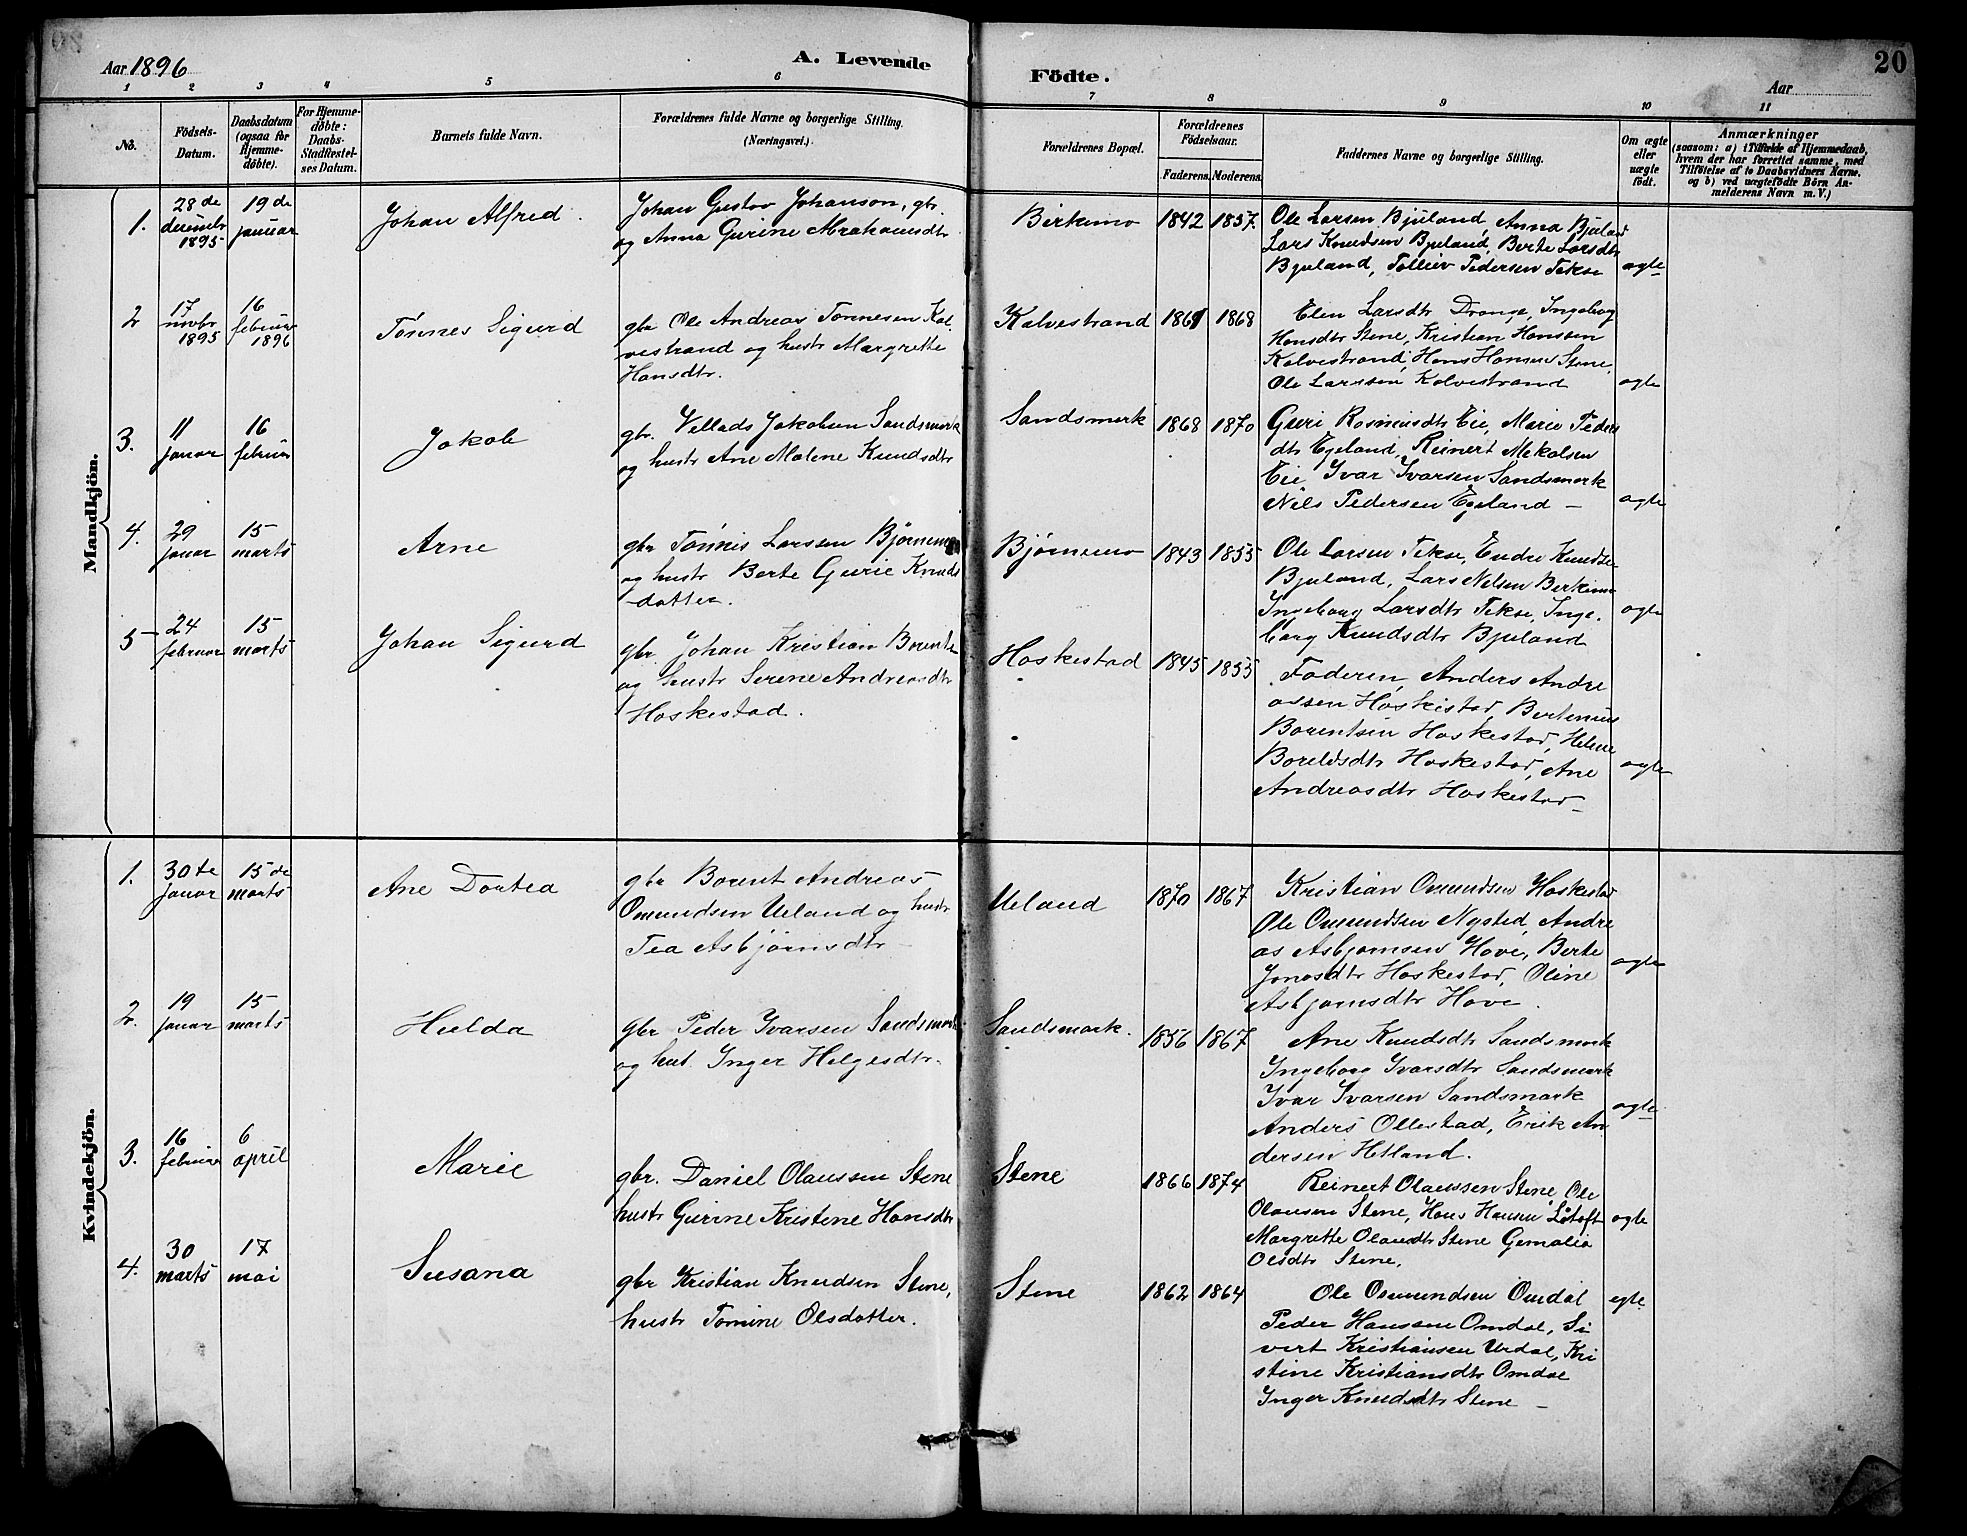 Aar 1896
A. Levende
Födte.
Aar
20
1 2 3 4 5 6 7 8 9 10 11
No.
Födsels-
Datum.
Daabsdatum
(ogsaa for
Hjemme-
döbte).
For Hjemme-
döbte:
Daabs-
Stadfæstel-
ses Datum.
Barnets fulde Navn.
Forældrenes fulde Navne og borgerlige Stilling.
(Næringsvei.)
Forældrenes Bopæl.
Forældrenes
Födselsaar.
Faderens. Moderens.
Faddernes Navne og borgerlige Stilling.
Om ægte
eller
uægte
født.
Anmærkninger
(saasom: a) i Tilfælde af Hjemmedaab,
hvem der har forrettet samme, med
Tilföielse af to Daabsvidners Navne,
og b) ved uægtefödte Börn An-
melderens Navn m.V.)
Mandkjön.
1.
28 de
decembr
1895
19 de
januar
Johan Alfred.
Johan Gustav Johanson, gbr.
og Anna Gurine Abrahamsdtr
Birkemo
1842 1857.
Ole Larsen Bjuland, Anna Bjuland
Lars Knudsen Bjuland, Berte Larsdtr
Bjuland, Tolleiv Pedersen Tekse
ægte
2
17
novbr
1895
16
februar
1896
Tönnes Sigurd
gbr Ole Andreas Tönnesen Kal
vestrand og hustr Margrette
Hansdtr.
Kalvestrand
1868
Elen Larsdtr Drange, Ingeborg
Hansdtr Stene, Kristian Hansen
Kalvestrand, Hans Hansen Stene,
Ole Larssen Kalvestrand
ægte
3.
11
januar
16
februar
Jakob
gbr. Vellads Jakobsen Sandsmark
og hustr Ane Malene Knudsdtr
Sandsmark
1868 1870
Guri Rasmusdtr Eie, Marie Peders
dtr Egeland, Reinert Mekalsen
Eie Ivar Ivarsen Sandsmark
Nils Pedersen Egeland –
ægte
4.
29
januar
15
marts
Arne
gbr Tönnis Larssen Bjørnemo
og hustr Berte Gurie Knuds
datter.
Bjørnemo
1843 1855
Ole Larsen Tekse, Endre Knudsen
Bjuland, Lars Nelsen Berkemo
Ingeborg Larsdtr Tekse, Inge-
borg Knudsdtr Bjuland
ægte
5
24
februar
15
marts
Johan Sigurd
gbr. Johan Kristian
og hustr Serene Andreasdtr
Haskestad.
Haskestad
1845 1855
Faderen, Anders Andre
assen Haskestad, Bertenius
Borentsen Haskestad, Helene
Haskestad, Ane
Andreasdtr Haskestad –
ægte
Kvindekjön.
1.
30 te
januar
15 de
marts
Ane Dortea
gbr Borent Andreas
Omundsen Ueland og hustr
Tea Asbjørnsdtr
Ueland
1870 1867
Kristian Omundsen Haskestad
Ole Omundsen Nysted, Andre
as Asbjørnsen Hove, Berte
Jonasdtr Haskestad, Oline
Asbjørnsdtr Hove.
ægte
2.
19
januar
15
marts
Hulda
gbr Peder Ivarsen Sandsmark
og hust. Inger Helgesdtr.
Sandsmark.
1856 1867
Ane Knudsdtr Sandsmark
Ingeborg Ivarsdtr Sandsmark
Ivar Ivarsen Sandsmark
Anders Ollestad, Erik An
dersen Hetland.
ægte
3.
16
februar
6
april
Marie
gbr. Daniel Olaussen Stene
hustr Gurine Kristene Hansdtr
Stene
1866 1874
Reinert Olaussen Stene, Ole
Olausen Stene, Hans Hansen Løtoft
Margrette Olausdtr Stene Gemalia
Olsdtr Stene.
ægte
4.
30
marts
17
mai
Susana
gbr Kristian Knudsen Stene,
hustr Tomine Olsdatter.
Stene
1862 1864
Ole Osmundsen Omdal
Peder Hanssen Omdal, Si
vert Kristiansen Urdal, Kri
stine Kristiansdtr Omdal
Inger Knudsdtr Stene –
egte